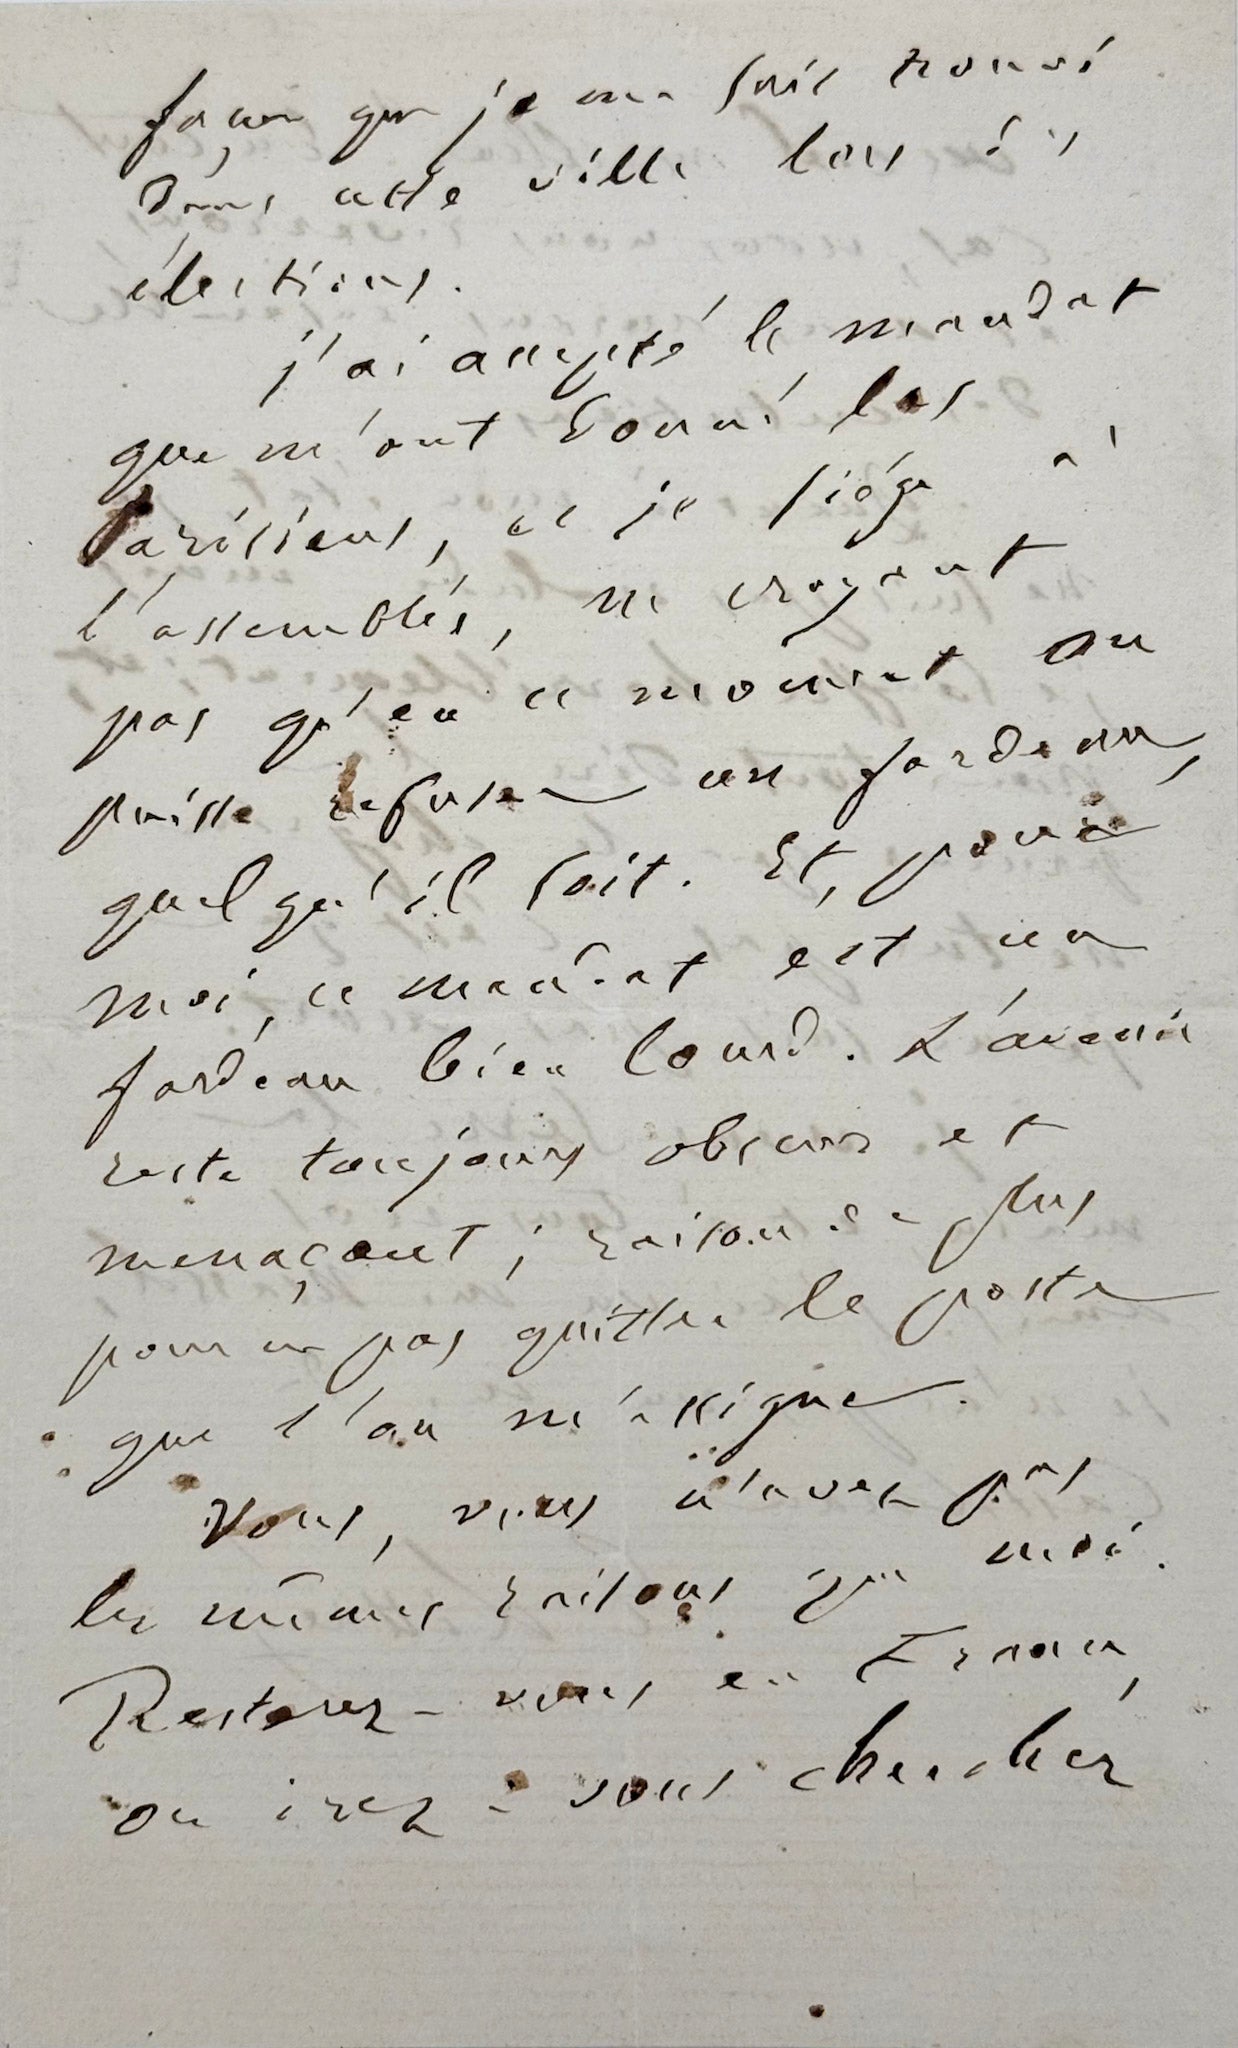 façon que je me sois trouvé
dans cette ville lors des
élections.
j'ai accepté le mandat
que m'ont donné les
Parisiens, et je siège à
l'assemblée, ne croyant
pas qu'en ce moment on
puisse refuser un fardeau,
quel qu'il soit. Et, pour
moi, ce mandat est un
fardeau bien lourd. L'avenir
reste toujours obscur et
menaçant ; raison de plus
pour ne pas quitter le poste
que l'on m'assigne.
Vous, vous n'avez pas
les mêmes raisons que moi.
Resterez-vous en France,
ou irez-vous chercher